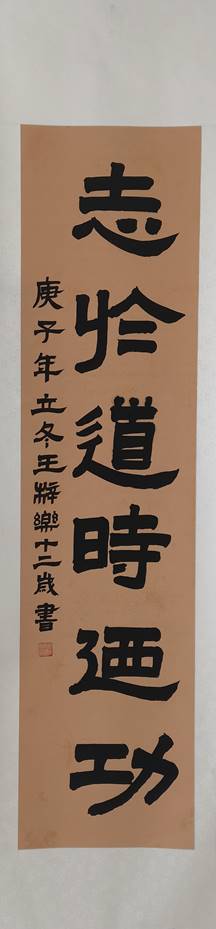 志於道時迺功
庚子年立冬王梓樂十二歲書